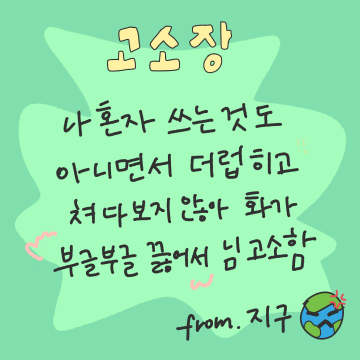 고소장
나 혼자 쓰는것도
아니면서 더럽히고
쳐다보지 않아 화가
부글부글 끓어서 님고소함
from. 지구